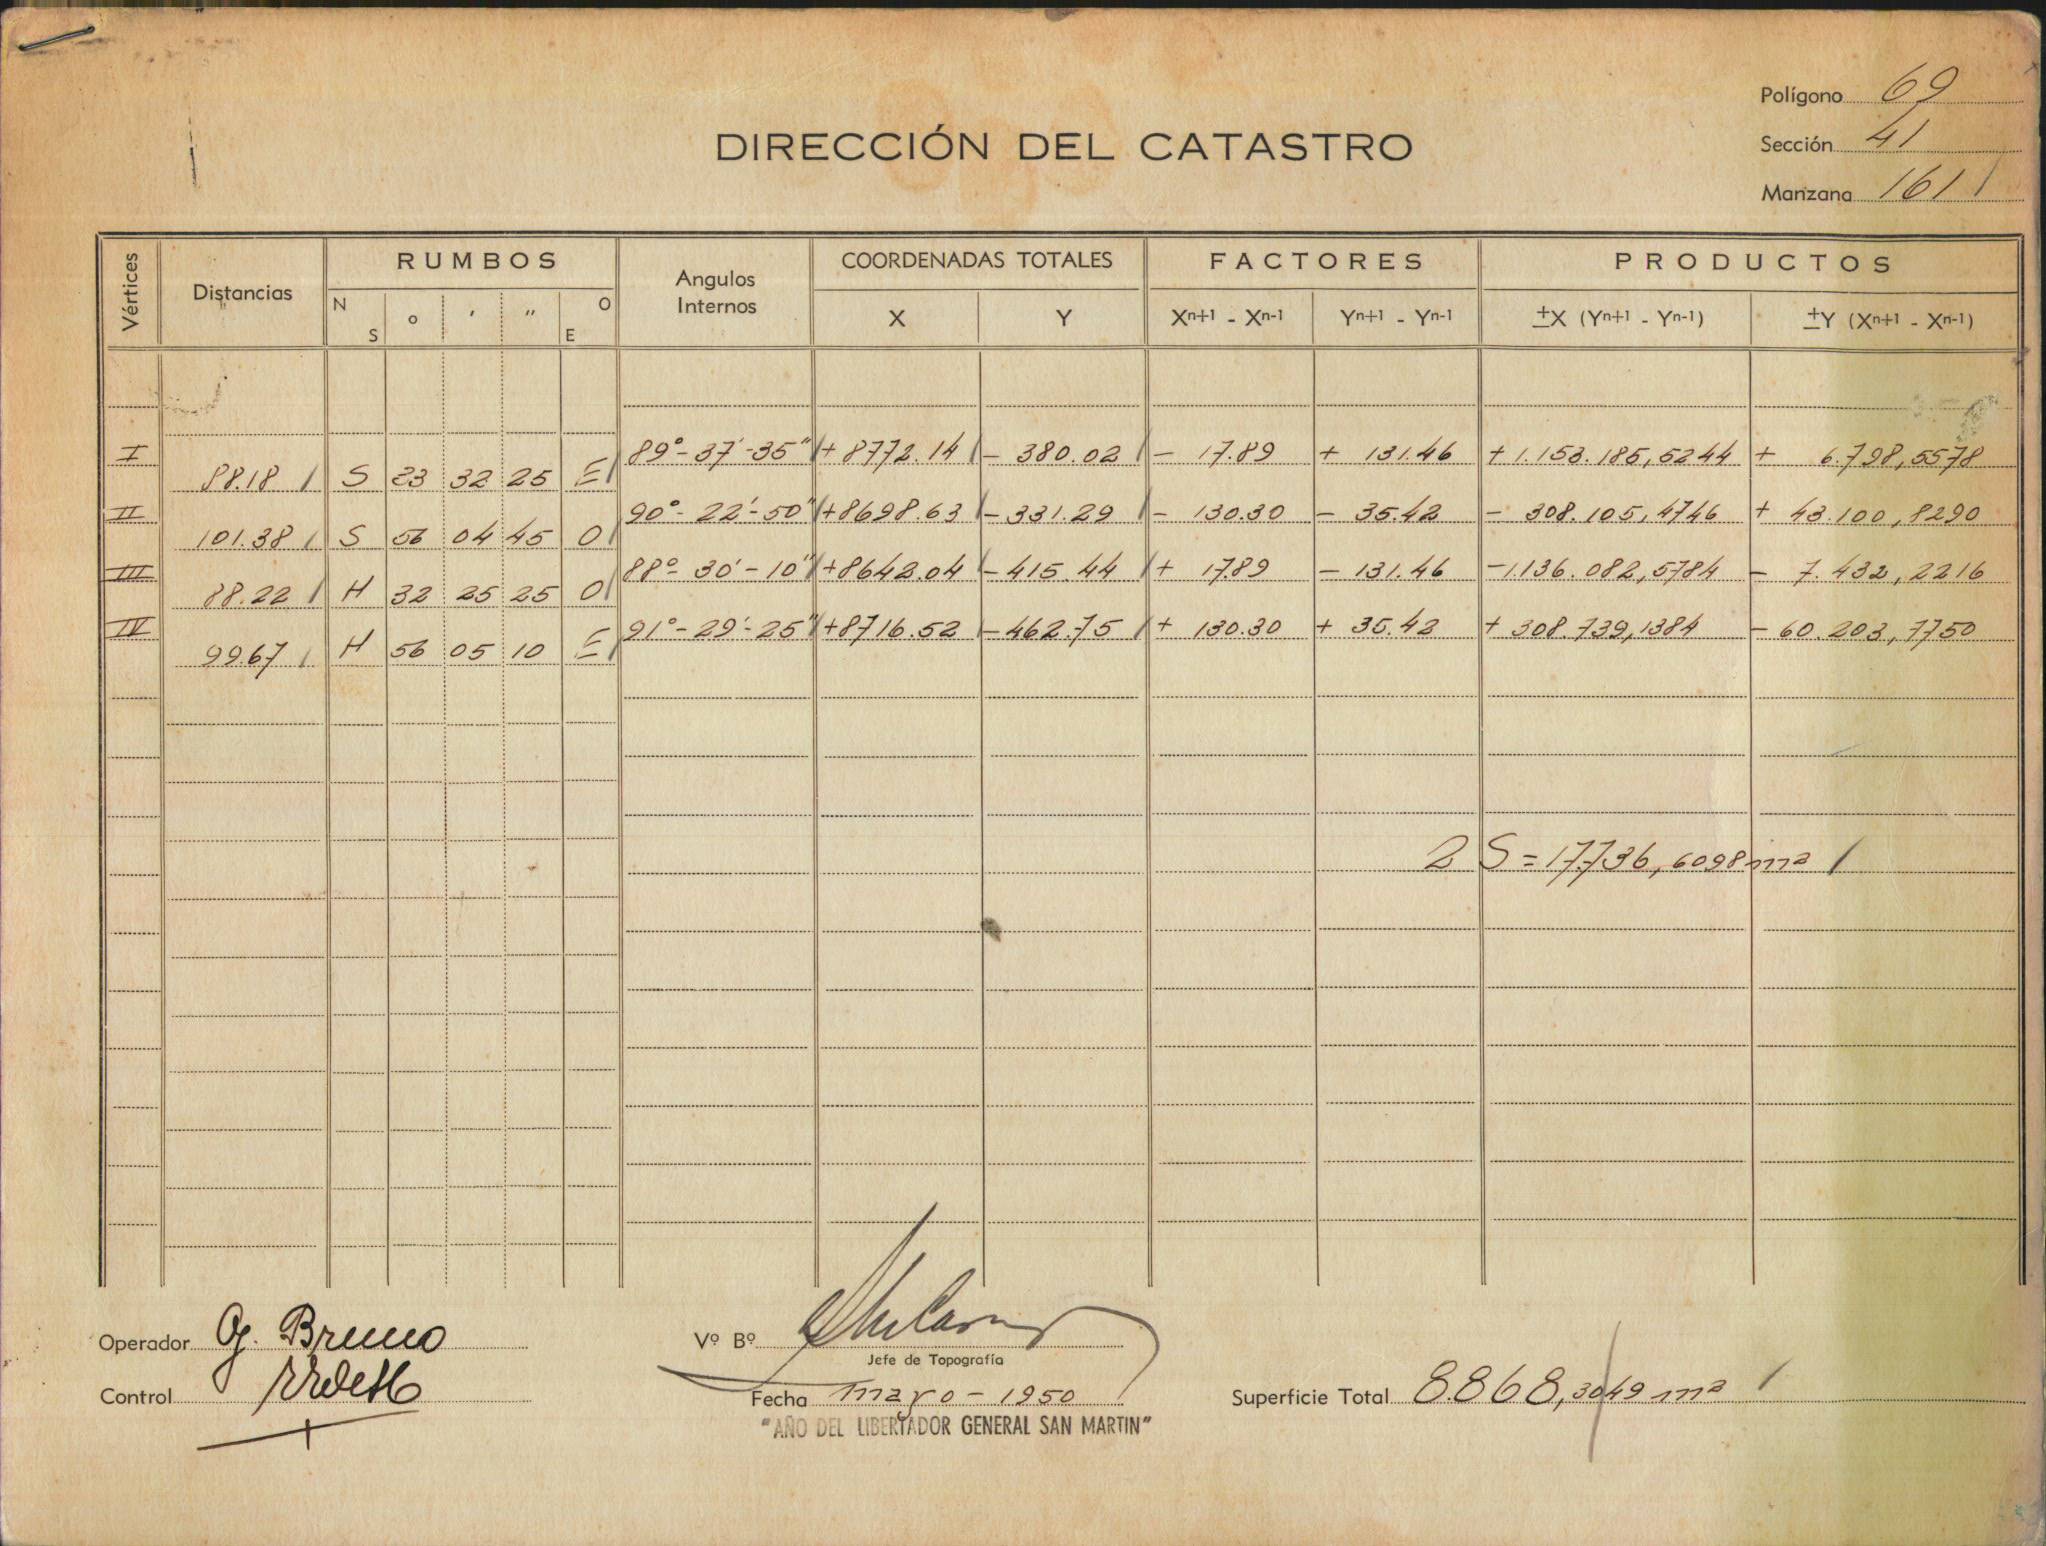 Polígono 69
Sección 41
Manzana 161
DIRECCIÓN DEL CATASTRO
Vértices Distancias RUMBOS Angulos Internos COORDENADAS TOTALES FACTORES PRODUCTOS
N S o ' " O E X Y Xn+1 - Xn-1 Yn+1 - Yn-1 ±X (Yn+1 - Yn-1) ±Y (Xn+1 - Xn-1)
I 89°-37'-35" +8772.14 - 380.02 - 17.89 + 131.46 +1.153.185,5244 + 6.798,5578
88.18 S 33 32 25 E
II 90°-22'-50" +8698.63 -331.29 - 130.10 - 35.42 - 308.105,4746 + 43.100,8290
101.38 S 56 04 45 O
III 88°-30'-10" +8642.04 -415.44 + 17.89 - 131.46 -1.136.082,5784 - 7.432,2216
88.22 N 32 25 25 O
IV 91°-29'-25" +8716.52 -462.75 + 130.10 + 35.42 + 308.739,1384 - 60.203,7750
99.67 N 56 05 10 E
2 S = 17.736,6098 m2
Operador G. Bruno
Control
Vº Bº
Jefe de Topografía
Fecha mayo - 1950
"AÑO DEL LIBERTADOR GENERAL SAN MARTIN"
Superficie Total 8.868,3049 m2